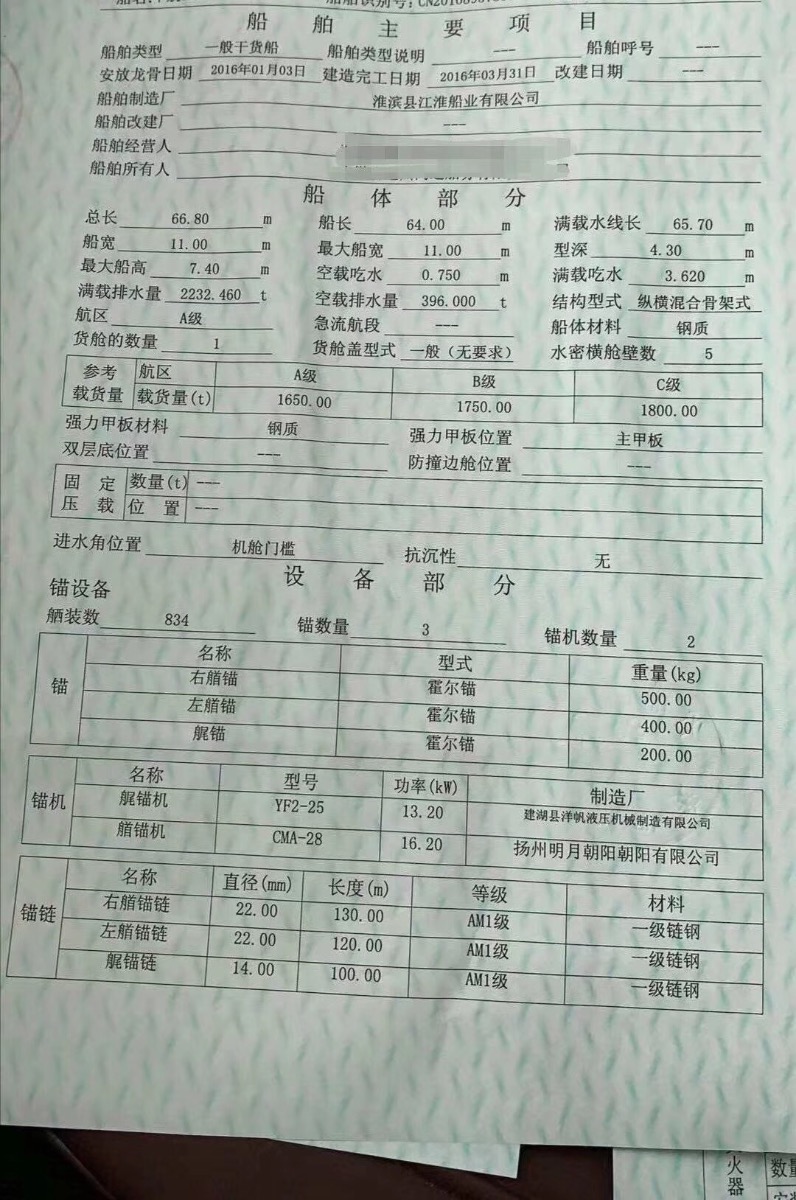 船舶主要项目
船舶类型 一般干货船 船舶类型说明 --- 船舶呼号 ---
安放龙骨日期 2016年01月03日 建造完工日期 2016年03月31日 改建日期 ---
船舶制造厂 淮滨县江淮船业有限公司
船舶改建厂 ---
船舶经营人
船舶所有人
船体部分
总长 66.80 m 船长 64.00 m 满载水线长 65.70 m
船宽 11.00 m 最大船宽 11.00 m 型深 4.30 m
最大船高 7.40 m 空载吃水 0.750 m 满载吃水 3.620 m
满载排水量 2232.460 t 空载排水量 396.000 t 结构型式 纵横混合骨架式
航区 A级 急流航段 --- 船体材料 钢质
货舱的数量 1 货舱盖型式 一般（无要求） 水密横舱壁数 5
参考 航区 A级 B级 C级
载货量 载货量(t) 1650.00 1750.00 1800.00
强力甲板材料 钢质 强力甲板位置 主甲板
双层底位置 --- 防撞边舱位置 ---
固定 数量(t) ---
压载 位置 ---
进水角位置 机舱门槛 抗沉性 无
设备部分
锚设备
舾装数 834 锚数量 3 锚机数量 2
锚 名称 型式 重量(kg)
右艏锚 霍尔锚 500.00
左艏锚 霍尔锚 400.00
艉锚 霍尔锚 200.00
锚机 名称 型号 功率(kW) 制造厂
艉锚机 YF2-25 13.20 建湖县洋帆液压机械制造有限公司
艏锚机 CMA-28 16.20 扬州明月朝阳朝阳有限公司
锚链 名称 直径(mm) 长度(m) 等级 材料
右艏锚链 22.00 130.00 AM1级 一级链钢
左艏锚链 22.00 120.00 AM1级 一级链钢
艉锚链 14.00 100.00 AM1级 一级链钢
火器
数量